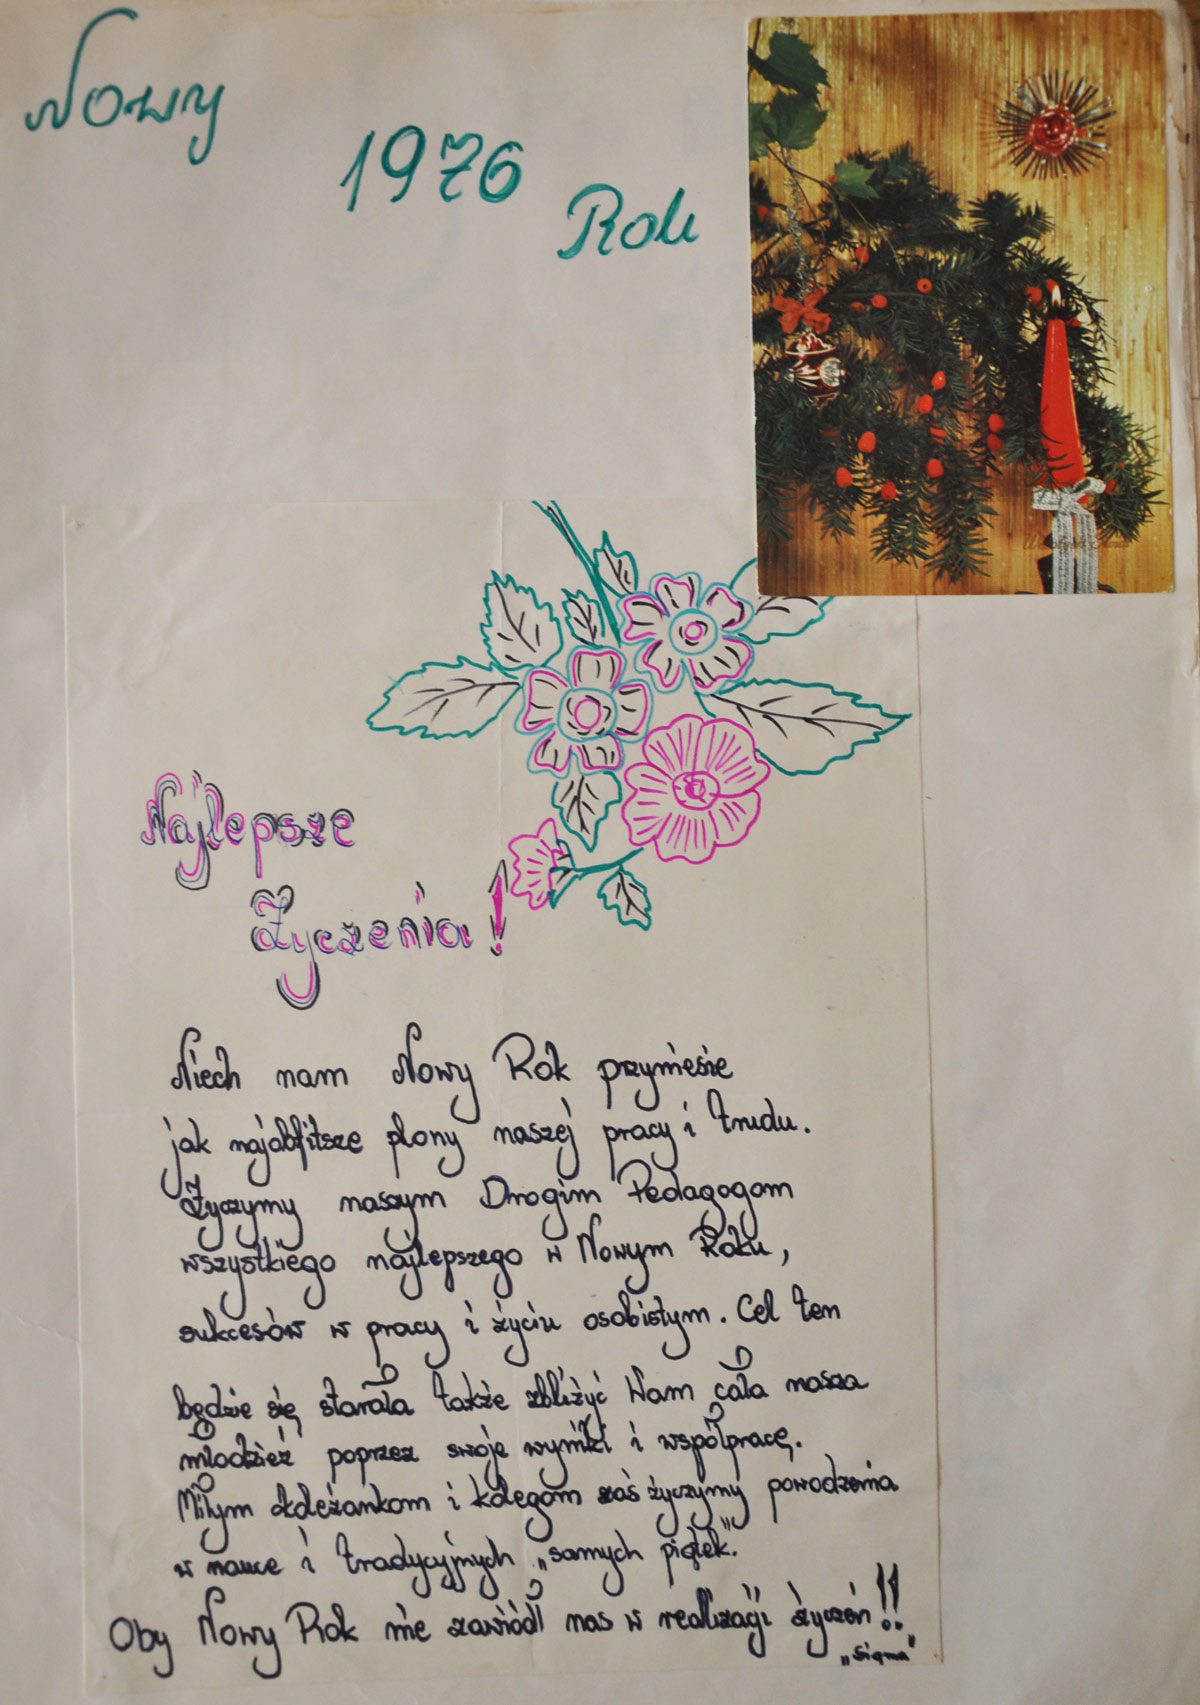 Nowy
1976
Rok
Najlepsze
Życzenia!
Niech nam Nowy Rok przyniesie
jak najobfitsze plony naszej pracy i trudu.
Życzymy naszym Drogim Pedagogom
wszystkiego najlepszego w Nowym Roku,
sukcesów w pracy i życiu osobistym. Cel ten
będzie się starała także zbliżyć Wam cała nasza
młodzież poprzez swoje wyniki i współpracę.
Miłym koleżankom i kolegom zaś życzymy powodzenia
w nauce i tradycyjnych „samych piątek".
Oby Nowy Rok nie zawiódł nas w realizacji życzeń!!
„Sigma"